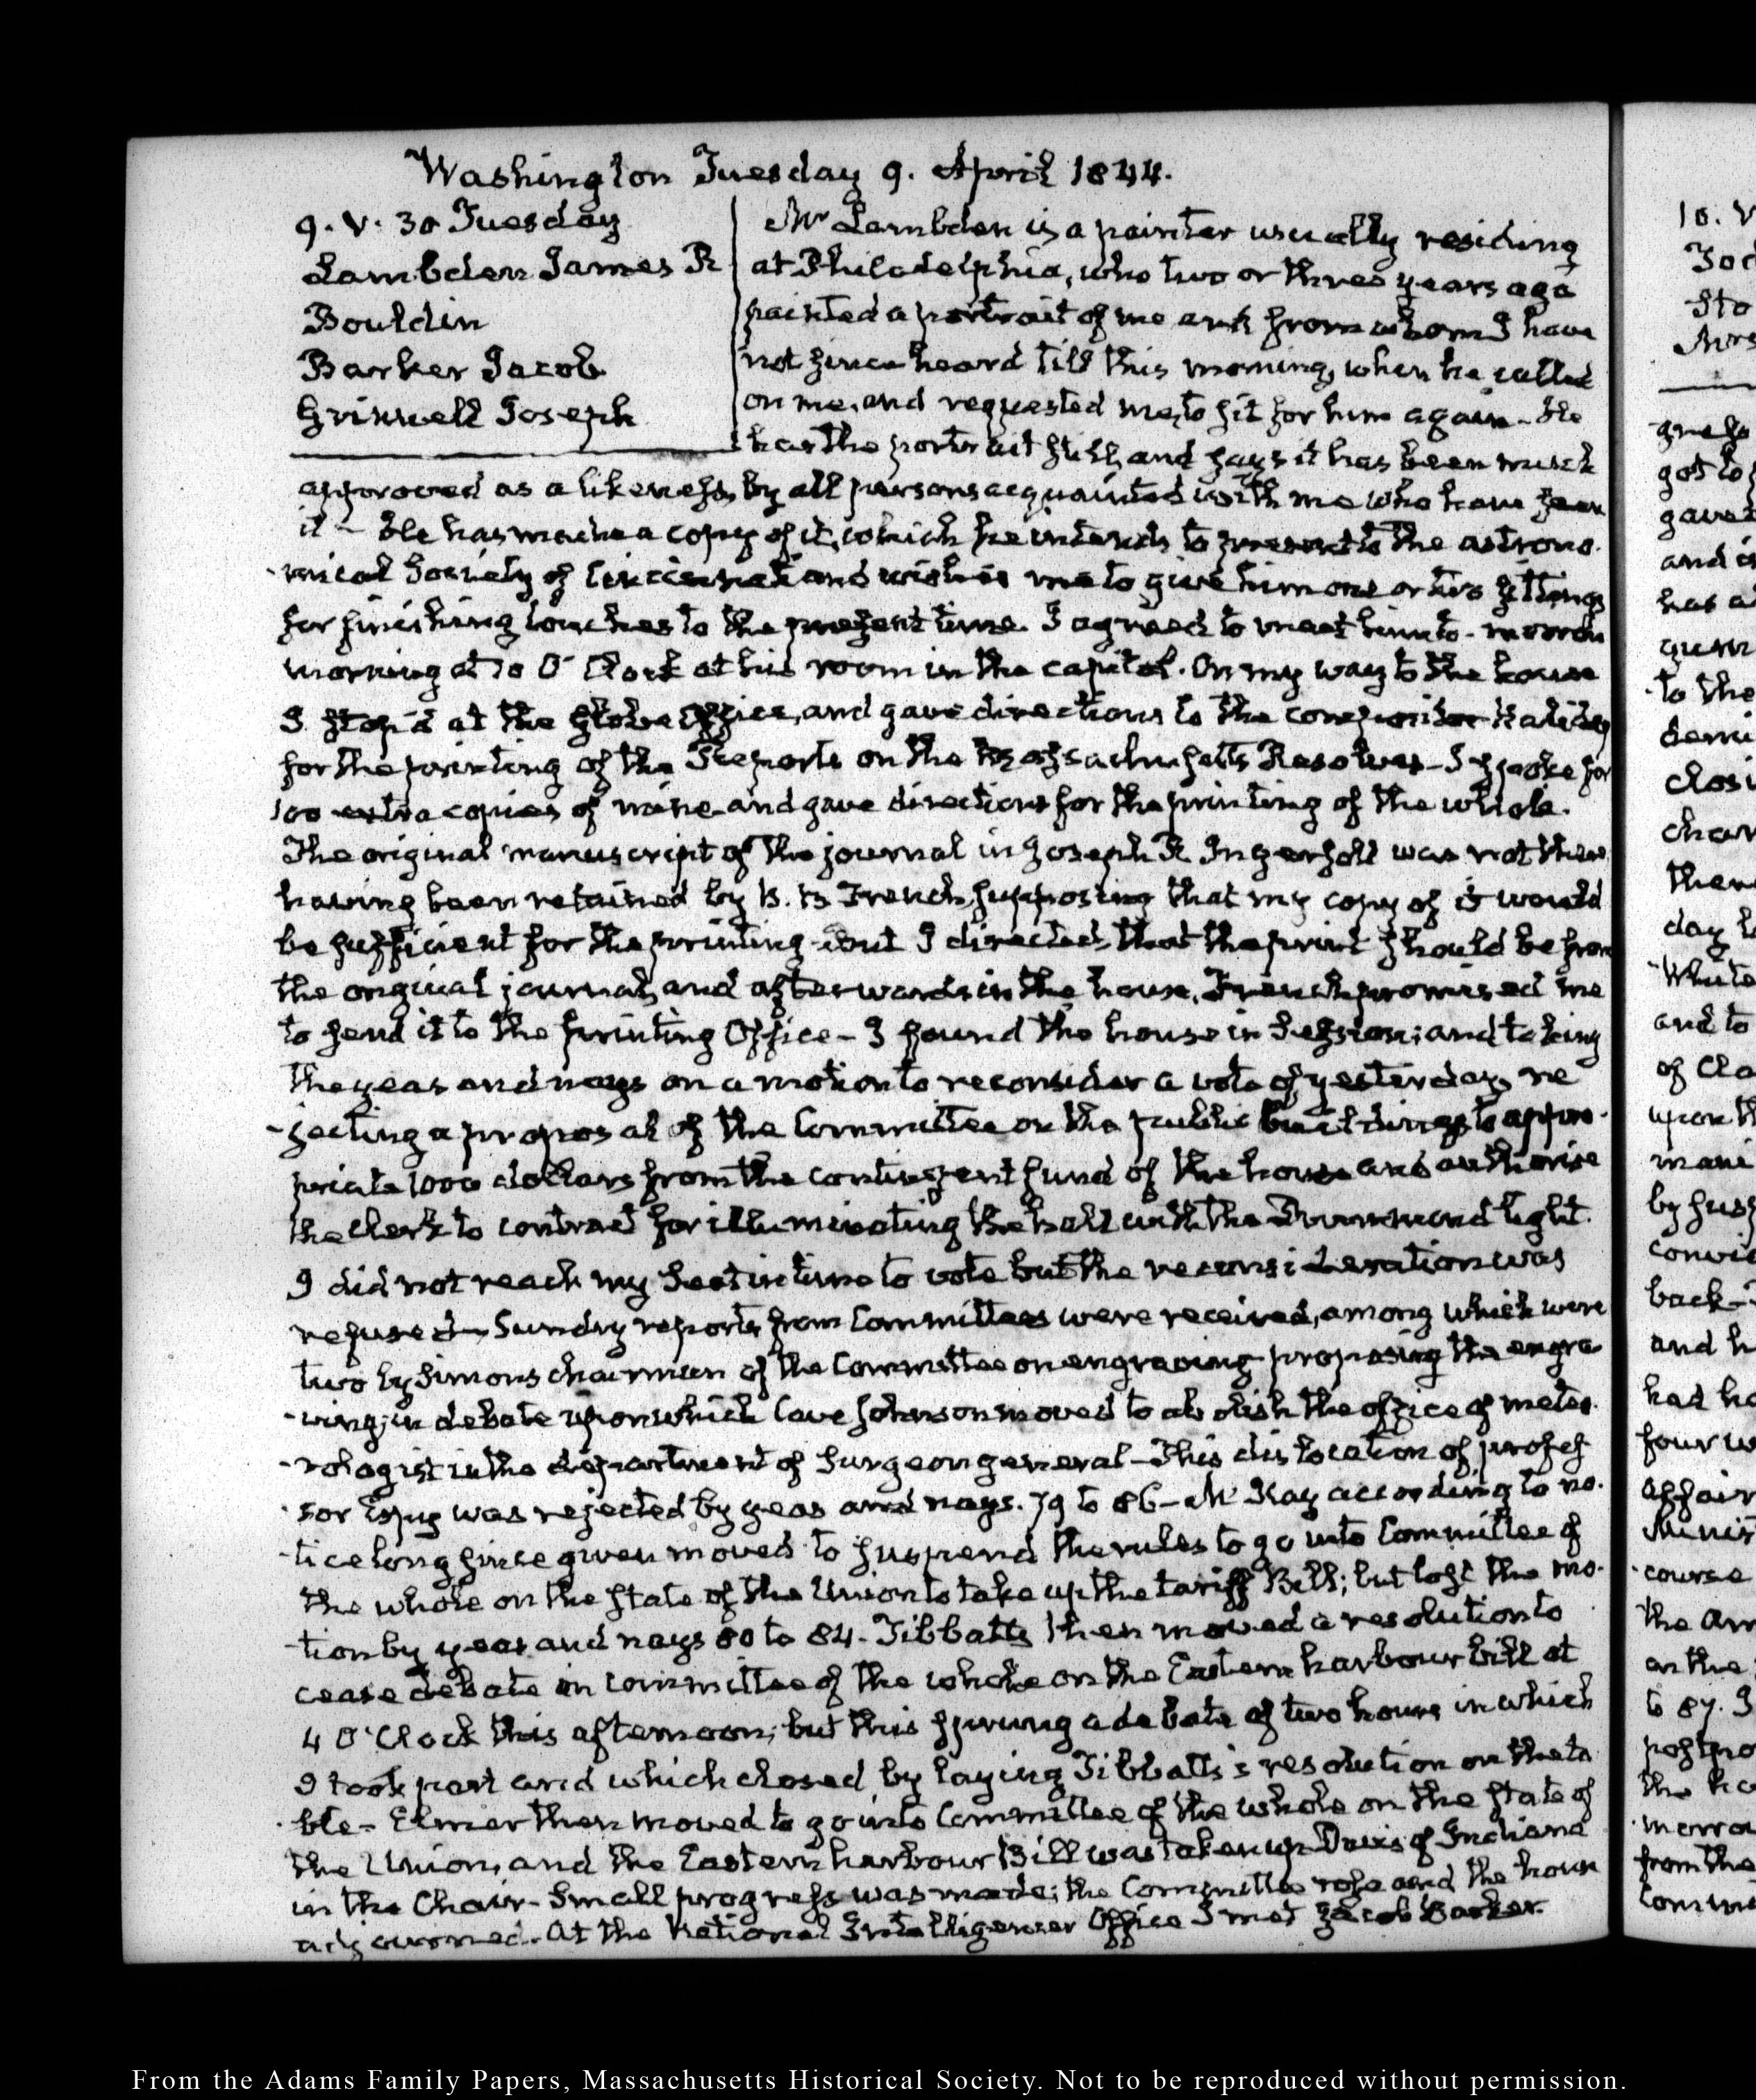 Washington Tuesday 9. April 1844.
9. V. 30 Tuesday
Lambden James R
Bouldin
Barker Jacob
Grinnell Joseph
Mr Lambden is a painter usually residing
at Philadelphia, who two or three years ago
painted a portrait of me and from whom I have
not since heard till this morning, when he called
on me, and requested me, to sit for him again. He
has the portrait still, and says it has been much
approved as a likeness, by all persons acquainted with me who have seen
it – He has made a copy of it, which he intends to present to the astrono-
-mical Society of Cincinnati and wishes me to give him one or two sittings
for finishing touches to the present time. I agreed to meet him to-morrow
morning at 10 O'Clock at his room in the capitol. On my way to the house
I stop'd at the Globe Office, and gave directions to the
for the printing of the Reports on the Massachusetts Resolves – I spoke for
100 extra copies of mine and gave directions for the printing of the whole.
The original manuscript of the journal in Joseph R. Ingersoll was not there
having been retained by B. B French, supposing that my copy of it would
be sufficient for the printing but I directed, that the print should be from
the original journal, and afterwards in the house, French promised me
to send it to the printing Office – I found the house in Session; and taking
the yeas and nays on a motion to reconsider a vote of yesterday, re
-jecting a proposal of the Committee on the public buildings to appro-
priate 1000 dollars from the contingent fund of the house and authorise
the clerk to contract for illuminating the hall with the Drummond light.
I did not reach my Seat in time to vote but the reconsideration was
refused – Sundry reports from Committees were received, among which were
two by Simons chairman of the Committee on engraving proposing the engra-
-ving; in debate upon which Cave Johnson moved to abolish the office of meteo-
-rologist in the department of Surgeon general – This dislocation of profes
-sor Espy was rejected by yeas and nays. 79 to 86 – Mc Kay according to no-
-tice long since given moved to suspend the rules to go into Committee of
the whole on the state of the Union to take up the tariff Bill; but lost the mo-
-tion by yeas and nays 80 to 84. Tibbatts then moved a resolution to
cease debate in committee of the whole on the Eastern harbour bill at
4 O'Clock this afternoon; but this sprung a debate of two hours in which
I took part and which closed by laying Tibbatts's resolution on the ta
-ble – Elmer then moved to go into Committee of the whole on the state of
the Union, and the Eastern harbour Bill was taken up Davis of Indiana
in the Chair – Small progress was made; the Committee rose and the house
adjourned. At the National Intelligencer Office I met Jacob Barker.
From the Adams Family Papers, Massachusetts Historical Society. Not to be reproduced without permission.